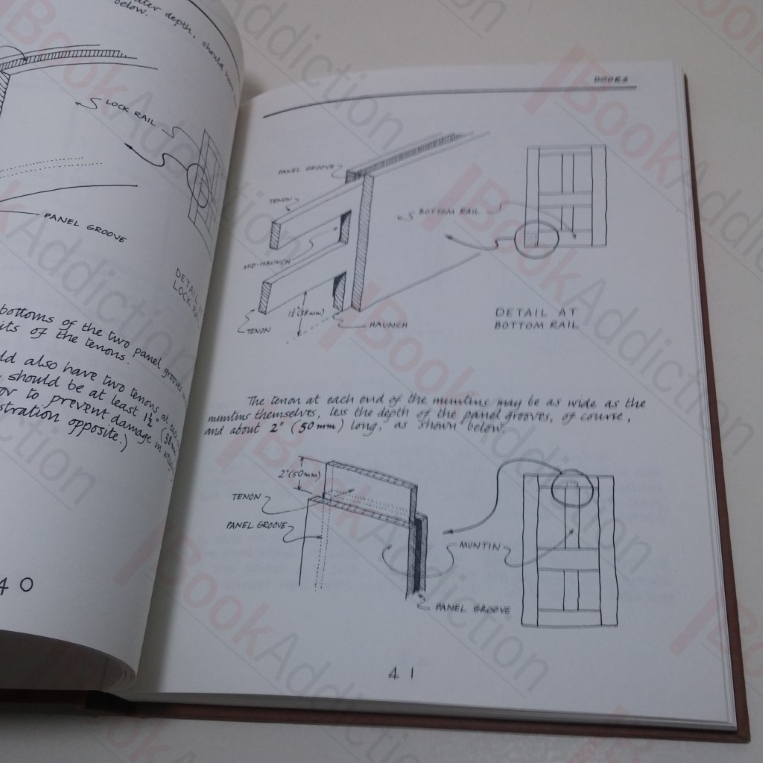 below.
LOCK RAIL
PANEL GROOVE
bottoms of the two panel grooves
of the tenons.
also have two tenons at
should be at least 1½"
or to prevent damage
opposite.)
40
DOORS
PANEL GROOVE
TENON
BOTTOM RAIL
MID-HAUNCH
1½"(38mm)
TENON
HAUNCH
DETAIL AT
BOTTOM RAIL
The tenon at each end of the muntins may be as wide as the
muntins themselves, less the depth of the panel grooves, of course,
and about 2" (50mm) long, as shown below.
2"(50mm)
TENON
PANEL GROOVE
MUNTIN
PANEL GROOVE
41
BookAddiction